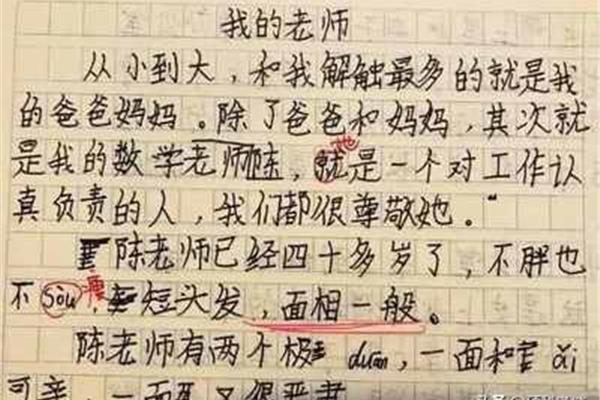 我的老师
从小到大，和我解触最多的就是我
的爸爸妈妈。除了爸爸和妈妈，其次就
是我的数学老师陈，就她是一个对工作认
真负责的人，我们都很尊敬她。"
陈老师已经四十多岁了，不胖也
不sòu瘦，短头发，面相一般。
陈老师有两个极duān，一面和ǎi
可亲，一面又很严肃